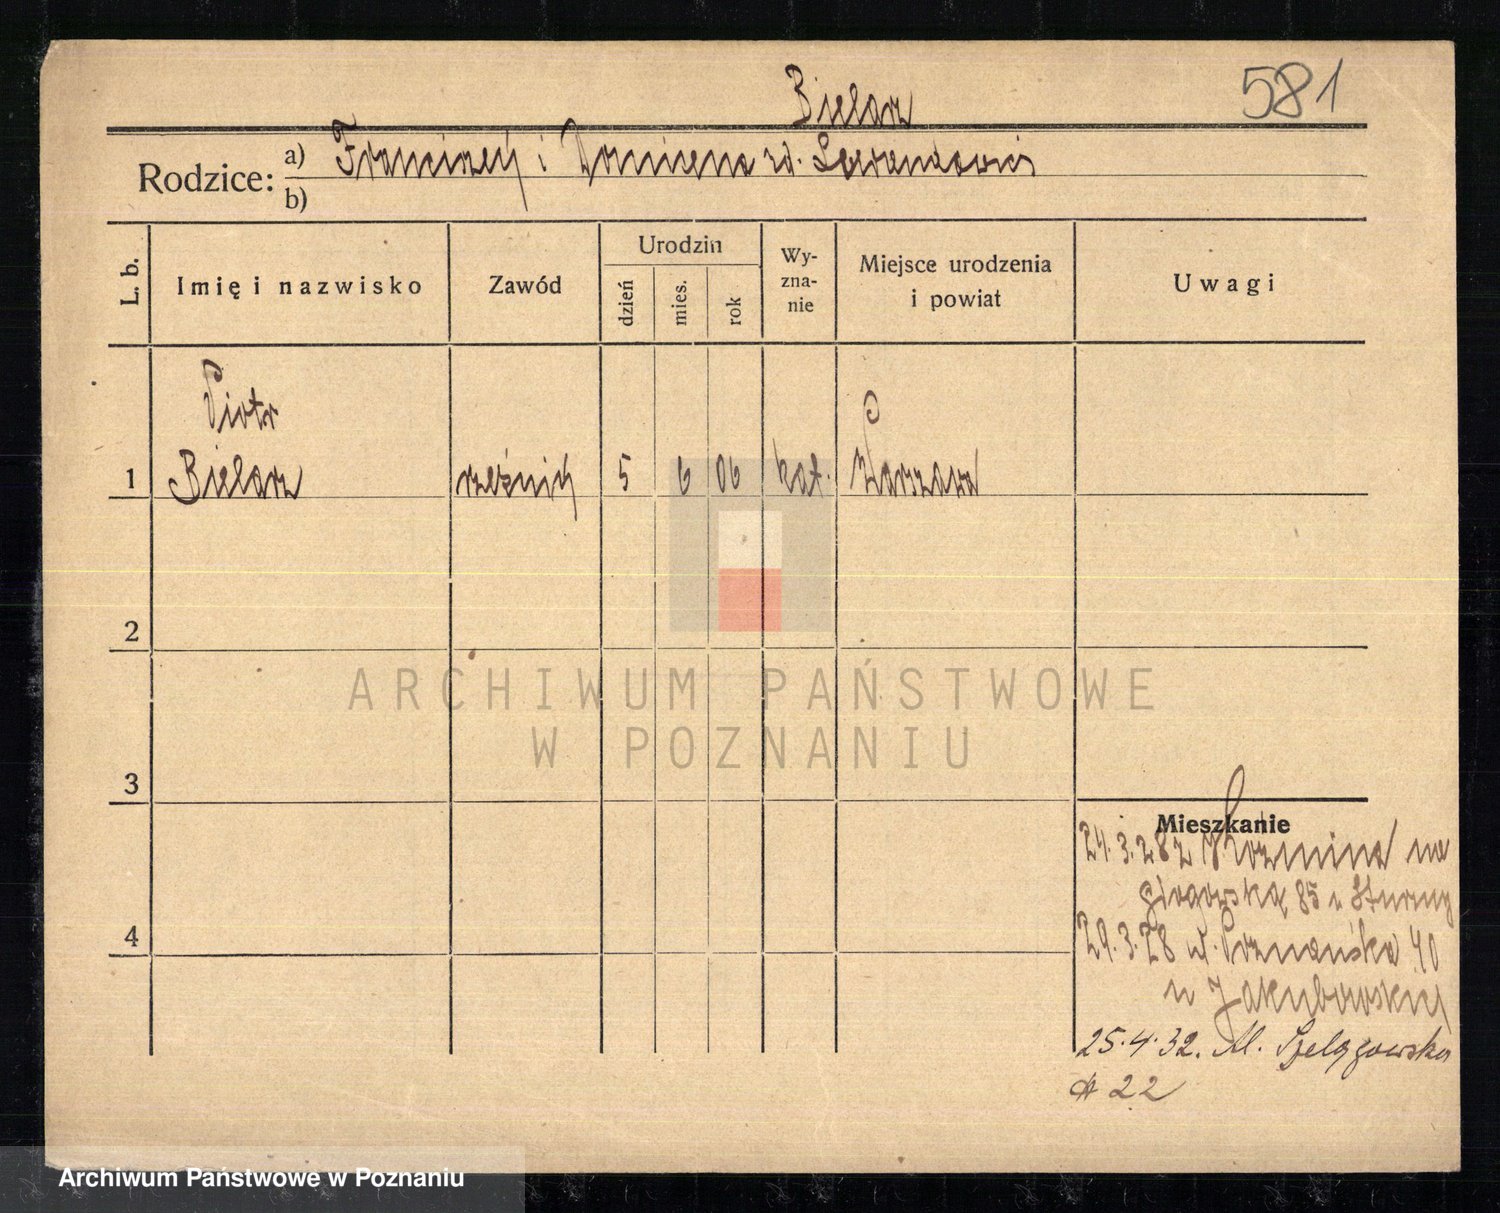 Bielarz
581
Rodzice: a) Franciszek i
b)
L. b.
Imię i nazwisko
Zawód
Urodzin
dzień
mies.
rok
Wy-
zna-
nie
Miejsce urodzenia
i powiat
Uwagi
Piotr
1 Bielarz rzeźnik 5 6 06 kat. Warszawa
2
ARCHIWUM PAŃSTWOWE
W POZNANIU
3
Mieszkanie
24.3.28 z Koźmina na
Głogowską 85 u
4
29.3.28 ul. Poznańska 40
u Jakubowskiej
25.4.32. Al. Szelągowska
# 22
Archiwum Państwowe w Poznaniu